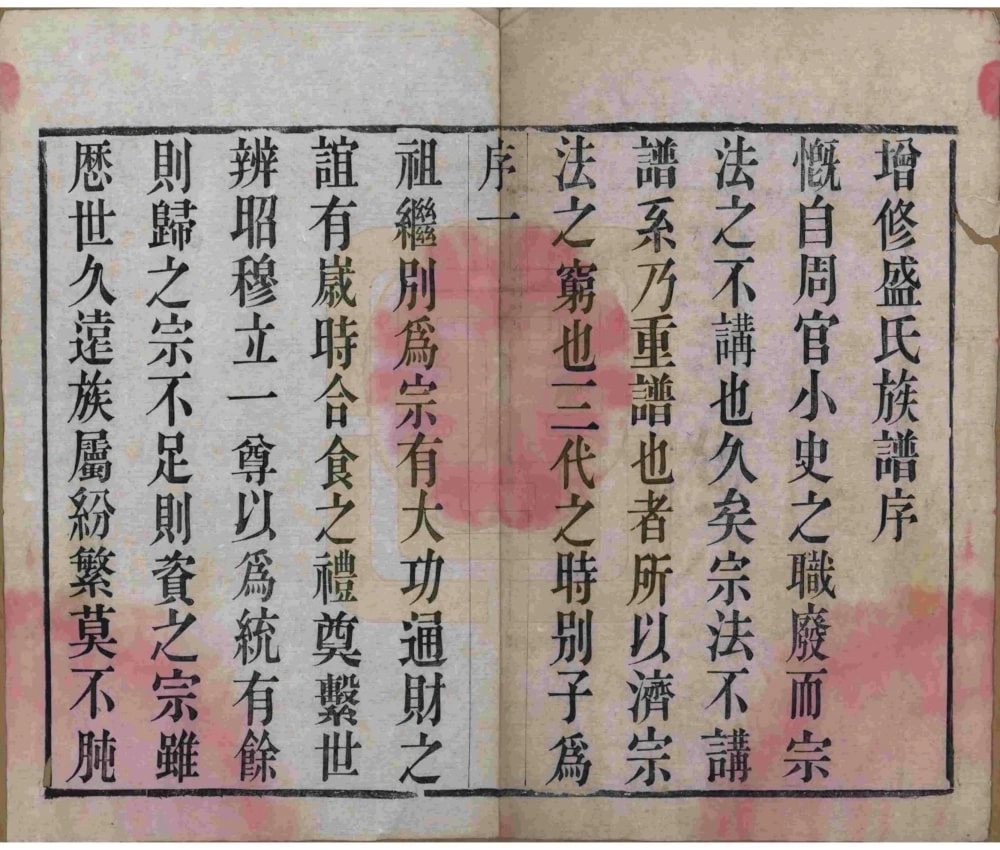 增修盛氏族譜序
慨自周官小史之職廢而宗
法之不講也久矣宗法不講
譜系乃重譜也者所以濟宗
法之窮也三代之時別子爲
序一
祖繼別爲宗有大功通財之
誼有嵗時合食之禮奠繫世
辨昭穆立一尊以爲統有餘
則歸之宗不足則資之宗雖
厯世久遠族屬紛繁莫不肫